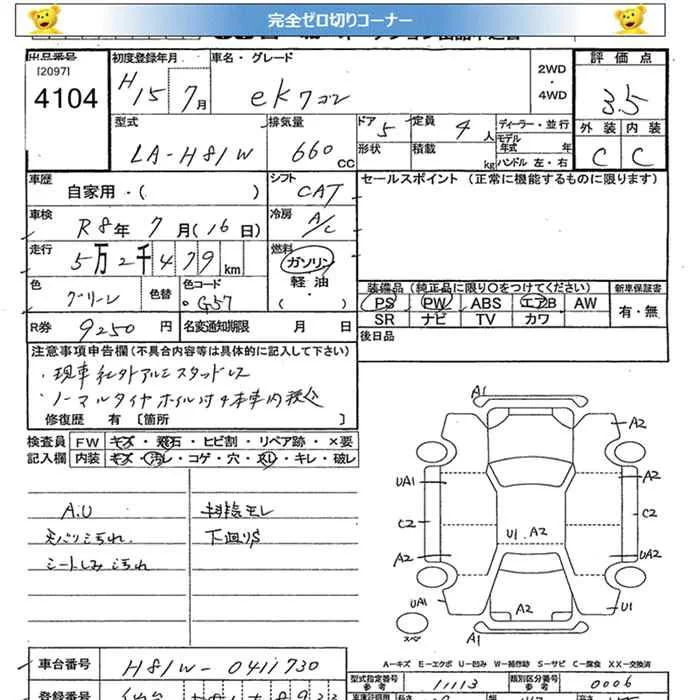 完全ゼロ切りコーナー
出品番号
[2097]
4104
初度登録年月
H 15年 7月
車名・グレード
ekワゴン
2WD
・
4WD
評価点
3.5
外装 内装
C C
型式
LA-H81W
排気量
660 CC
ドア 5
形状
定員 4人
積載 kg
ディーラー・並行
モデル年式 年
ハンドル 左・右
車歴
自家用・( )
シフト
CAT
セールスポイント (正常に機能するものに限ります)
車検
R8年 7月(16日)
冷房
A/C
走行
5万2千479km
燃料
ガソリン
軽油
・
( )
色
グリーン
色替
色コード
G57
装備品(純正品に限り○をつけてください)
PS PW ABS エアB AW
SR ナビ TV カワ
新車保証書
有・無
R券 9250円
名変通知期限 月 日
後日品
注意事項申告欄(不具合内容等は具体的に記入して下さい)
・現車社外アルミスタッドレス
・ノーマルタイヤホイル付4本車内積込
修復歴 有 [箇所 ]
検査員
記入欄
FW キズ・飛石・ヒビ割・リペア跡・×要
内装 キズ・汚レ・コゲ・穴・スレ・キレ・破レ
A.U
天バリ汚れ
シートしみ汚れ
下廻りS
A1
A2
UA1
A2
C2
C2
U1 A2
A2
UA2
UA1
A2
U1
スペア
A1
A-キズ E-エクボ U-凹み W-補修跡 S-サビ C-腐食 XX-交換済
車台番号
H81W-0411730
型式指定番号
参考
11113
類別区分番号
参考
0006
登録番号